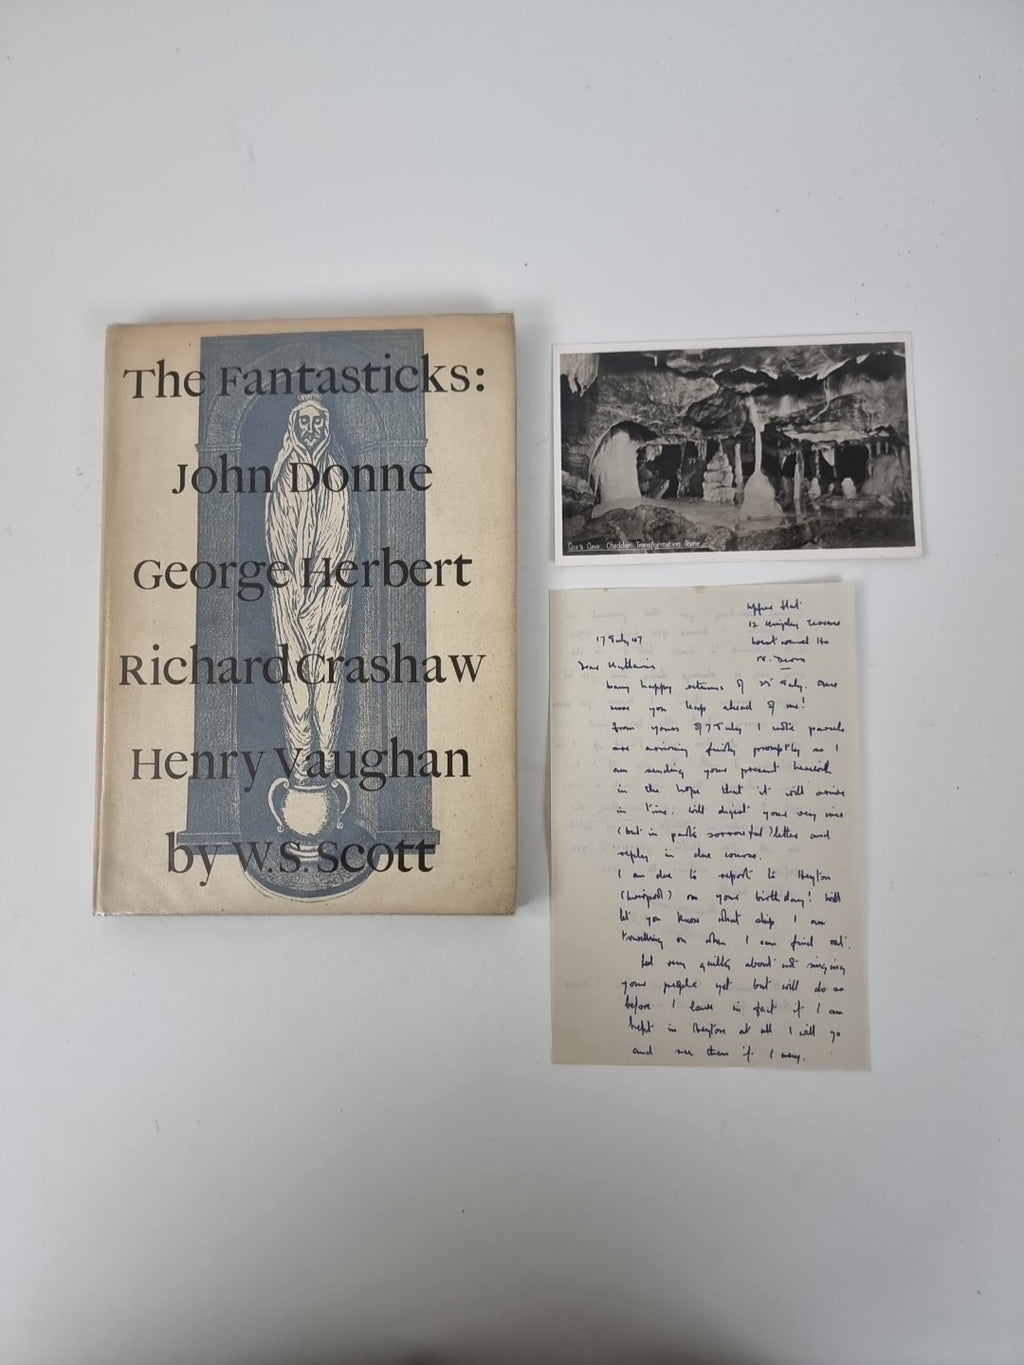 The Fantasticks:
John Donne
George Herbert
Richard Crashaw
Henry Vaughan
by W.S. Scott
Cox's Cave, Cheddar. Transformation Scene
Upper Flat
12 Terrace
Westward Ho
N. Devon
17 July 47
Dear Katharine
Many happy returns of 25 July. Once
more you leap ahead of me!
From yours of 7 July I note parcels
are arriving fairly promptly so I
am sending your present herewith
in the hope that it will arrive
in time. Will digest your very nice
(but in parts sorrowful) letter and
reply in due course.
I am due to report to Huyton
(Liverpool) on your birthday! Will
let you know what ship I am
travelling on when I can find out.
Feel very guilty about not ringing
your people yet but will do so
before I leave in fact if I am
kept in Huyton at all I will go
and see them if I may.